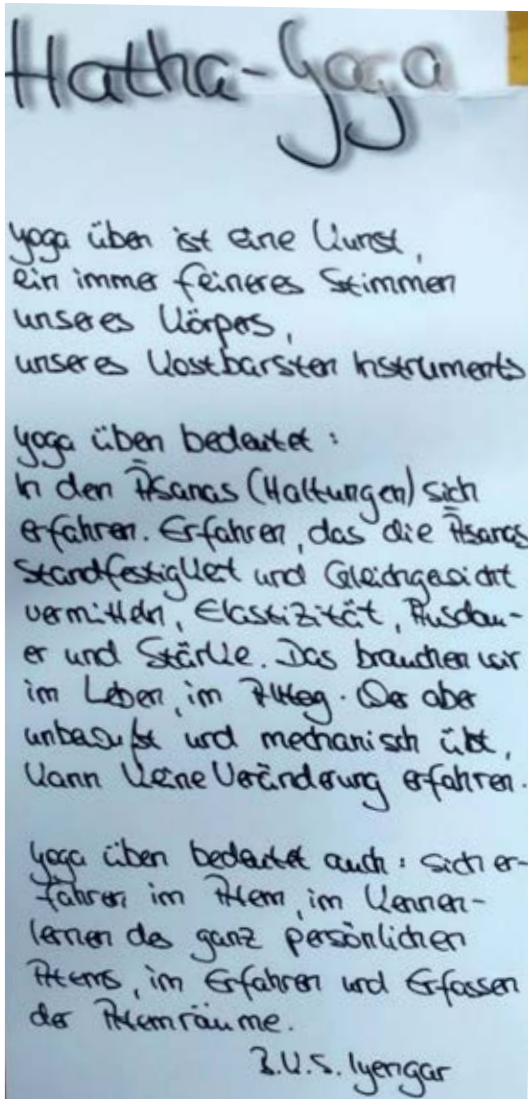 Hatha-Yoga
Yoga üben ist eine Kunst,
ein immer feineres Stimmen
unseres Körpers,
unseres Kostbarsten Instruments
Yoga üben bedeutet :
In den Āsanas (Haltungen) sich
erfahren. Erfahren, das die Āsanas
Standfestigkeit und Gleichgewicht
vermitteln, Elastizität, Ausdau-
er und Stärke. Das brauchen wir
im Leben, im Alltag. Wer aber
unbewußt und mechanisch übt,
kann keine Veränderung erfahren.
Yoga üben bedeutet auch : sich er-
fahren im Atem, im Kennen-
lernen des ganz persönlichen
Atems, im Erfahren und Erfassen
der Atemräume.
B.K.S. Iyengar